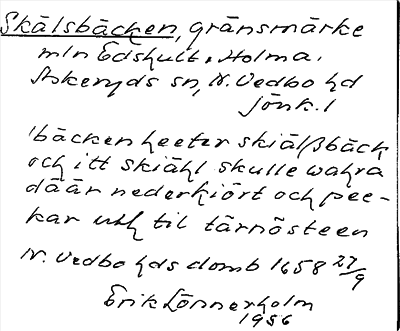 Skälsbäcken, gränsmärke
mln Edshult o. Holma.
Askeryds sn, N. Vedbo hd
Jönk. l
'bäcken heeter skiälßbäck
och itt skiähl skulle wahra
däär nederkiört och pee-
kar uth til tärnösteen
N. Vedbo hds domb 1658 27/9
Erik Lönnerholm
1956